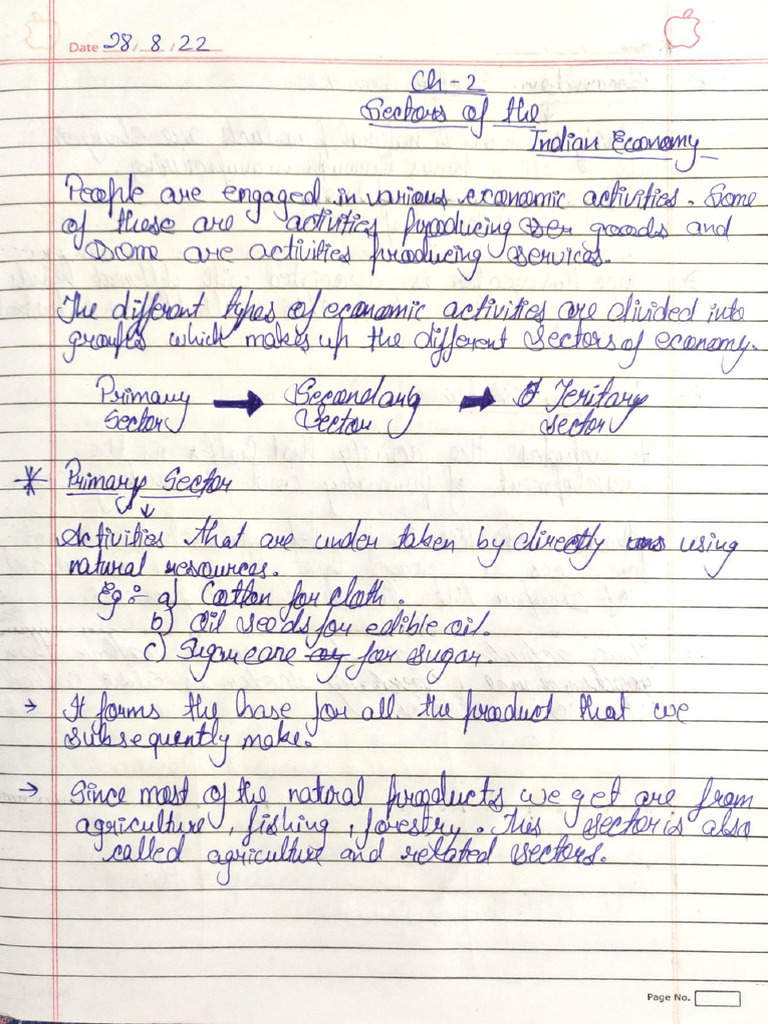 Date 28/8/22
Ch-2
Sectors of the
Indian Economy
People are engaged in various economic activities. Some
of these are activities producing goods and
some are activities producing services.
The different types of economic activities are divided into
groups which makes up the different sectors of economy.
Primary → Secondary → Teritary
Sector Sector sector
* Primary Sector
Activities that are under taken by directly using
natural resources.
Eg:- a) Cotton for cloth.
b) Oil seeds for edible oil.
c) Sugarcane for sugar.
→ It forms the base for all the product that we
subsequently make.
→ Since most of the natural products we get are from
agriculture, fishing, forestry. This sector is also
called agriculture and related sectors.
Page No.